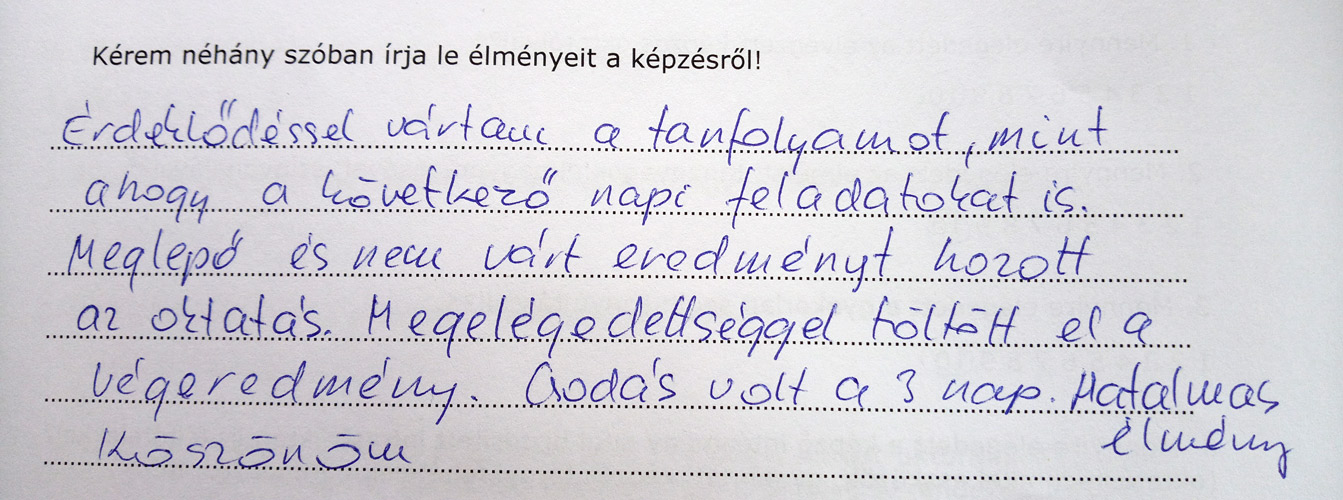 Kérem néhány szóban írja le élményeit a képzésről!
Érdeklődéssel vártam a tanfolyamot, mint
ahogy a következő napi feladatokat is.
Meglepő és nem várt eredményt hozott
az oktatás. Megelégedettséggel töltött el a
végeredmény. Csodás volt a 3 nap. Hatalmas
élmény
Köszönöm